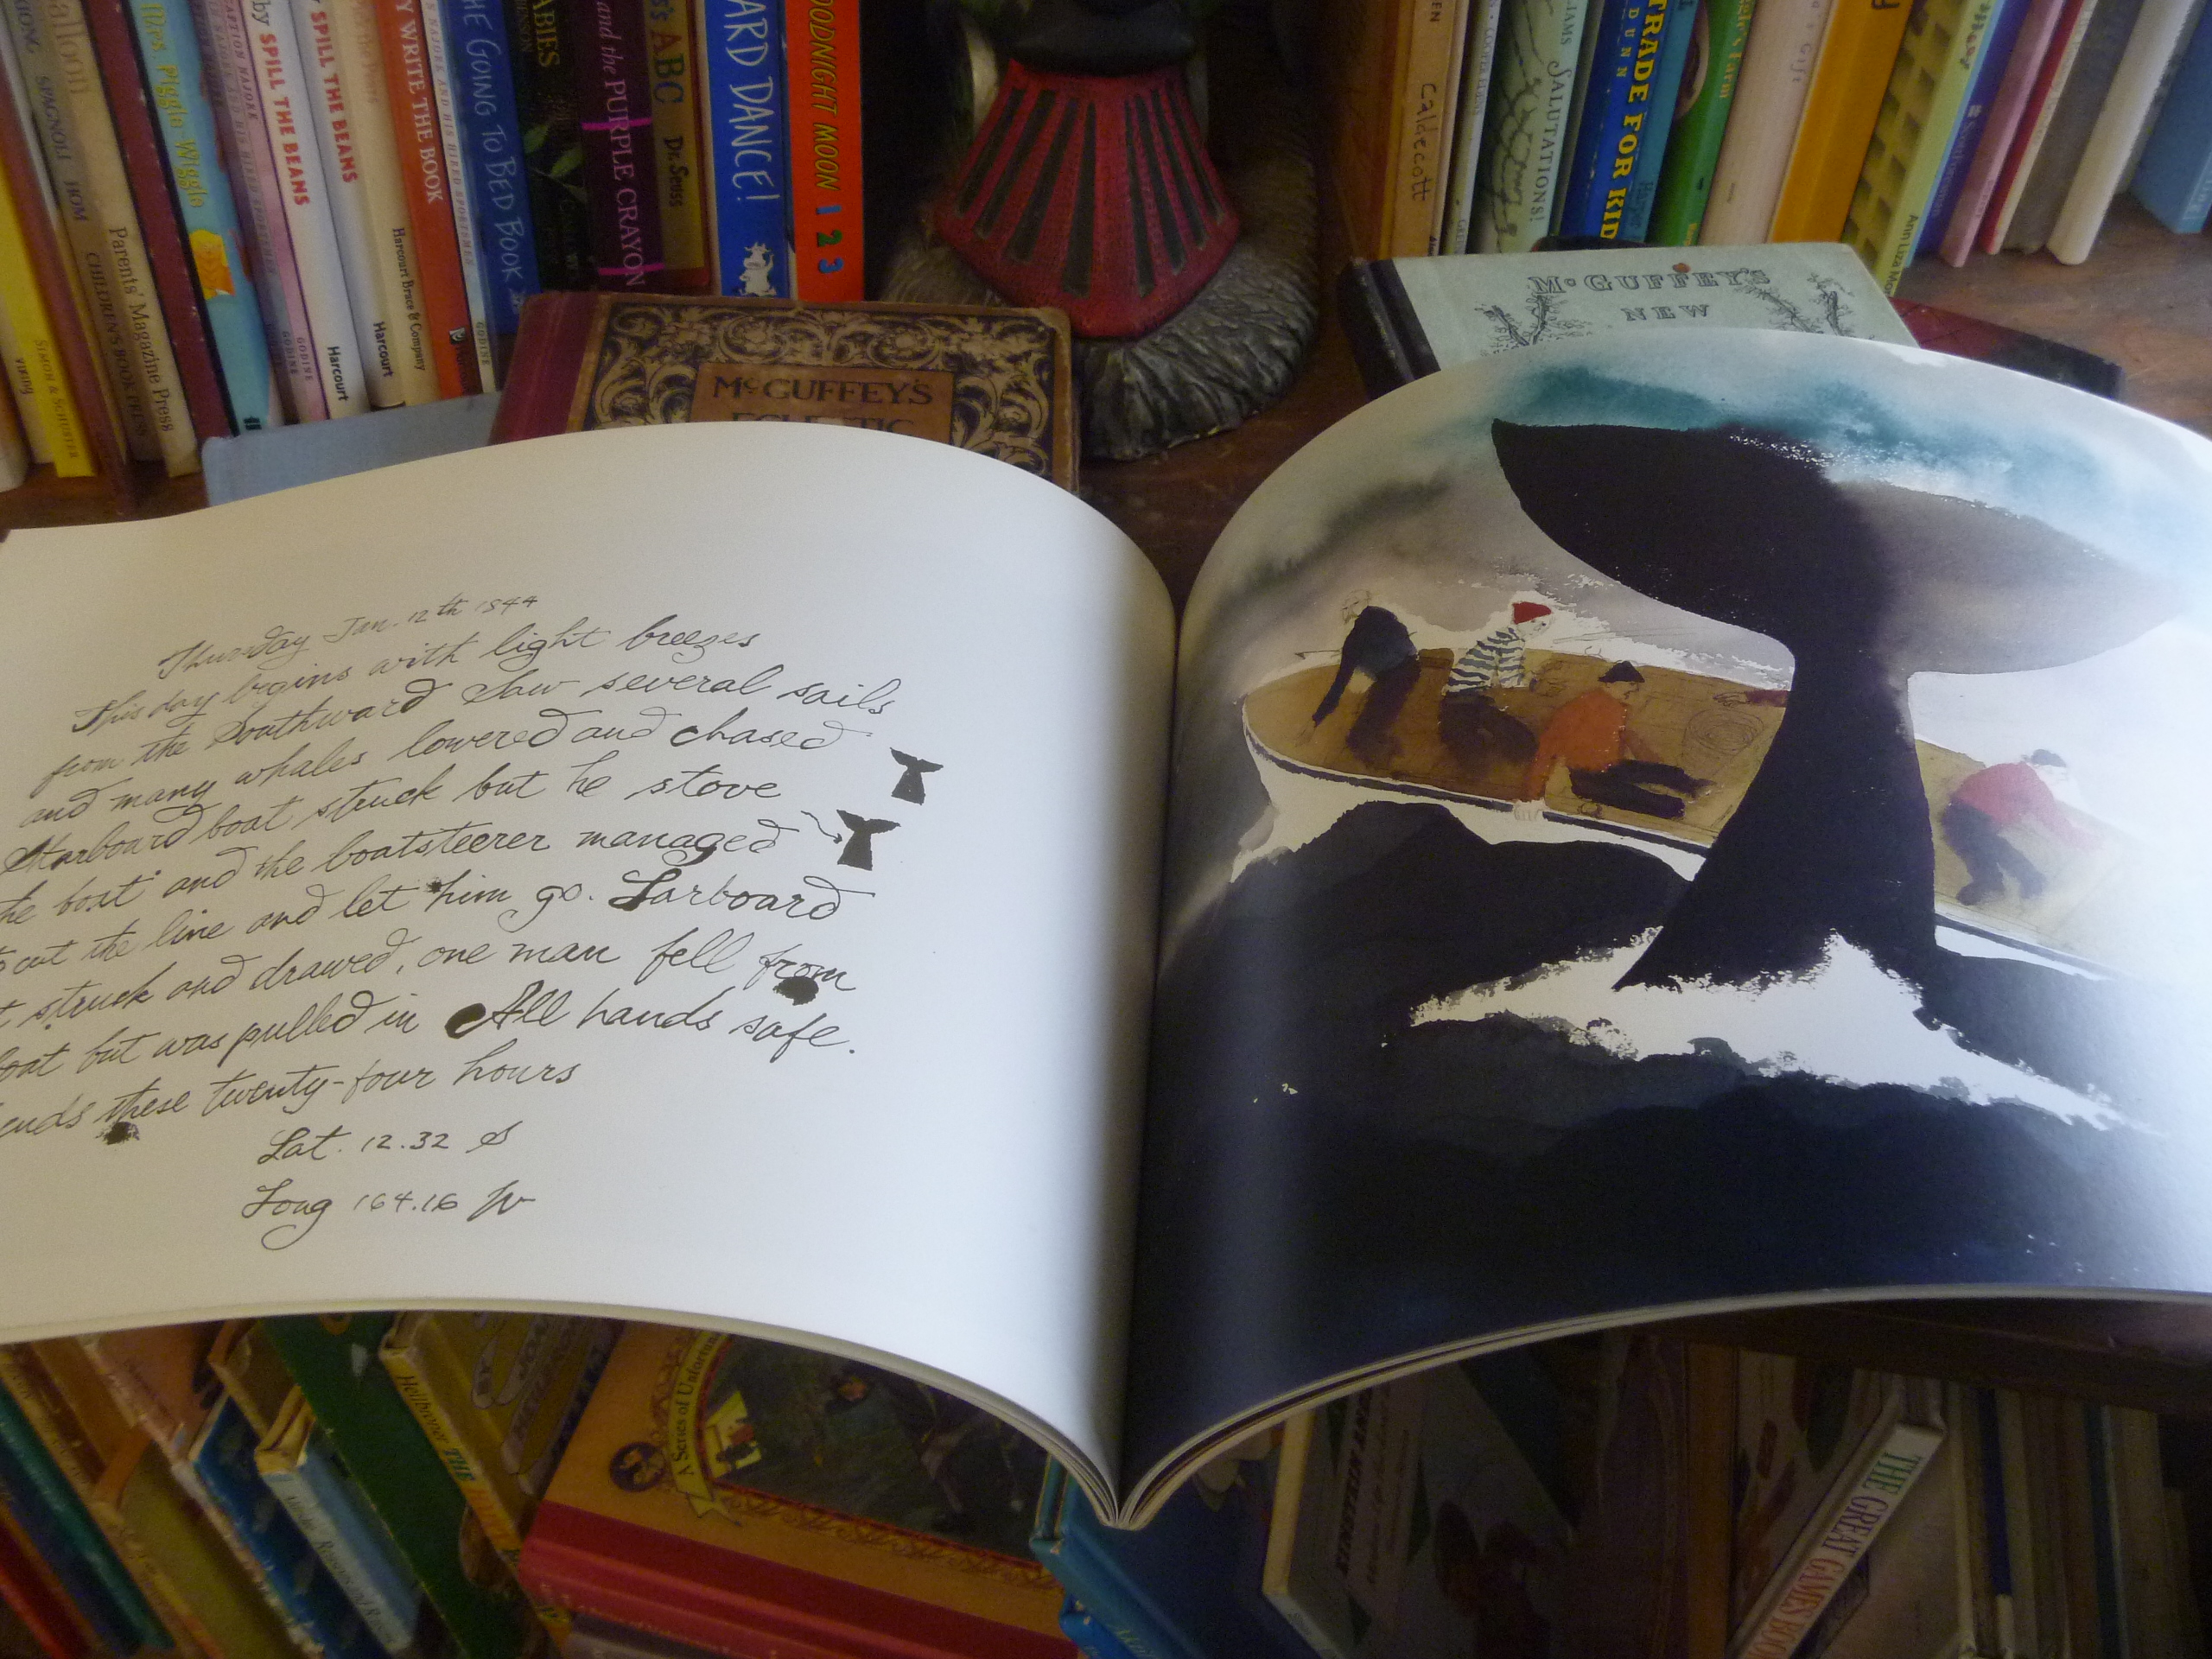 SPAGNOLI
Parents' Magazine Press
CHILDREN'S BOOK PRESS
VIKING
SIMON & SCHUSTER
Mrs. Piggle Wiggle
by SPILL THE BEANS
GODINE
SPILL THE BEANS
GODINE
Harcourt
Harcourt
WRITE THE BOOK
Harcourt Brace & Company
THE GOING TO BED BOOK
GODINE
and the PURPLE CRAYON
ABC Dr. Seuss
ARD DANCE!
OODNIGHT MOON 1 2 3
Caldecott
SALUTATIONS!
TRADE FOR KID
DUNN
McGUFFEY'S
McGUFFEY'S
NEW
Thursday Jan. 12th 1844
This day begins with light breezes
from the Southward Saw several sails
and many whales lowered and chased
Starboard boat struck but he stove
the boat and the boatsteerer managed
to cut the line and let him go. Larboard
struck and drawed, one man fell from
boat but was pulled in All hands safe.
ends these twenty-four hours
Lat. 12.32 S
Long 164.16 W
A Series of Unfortun
THE GREAT GAMES BOOK